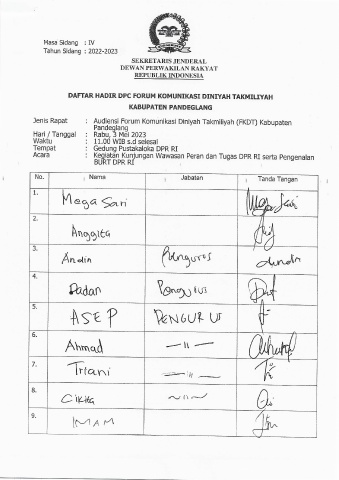 Masa Sidang : IV
Tahun Sidang : 2022-2023
SEKRETARIS JENDERAL
DEWAN PERWAKILAN RAKYAT
REPUBLIK INDONESIA
DAFTAR HADIR DPC FORUM KOMUNIKASI DINIYAH TAKMILIYAH
KABUPATEN PANDEGLANG
Jenis Rapat : Audiensi Forum Komunikasi Diniyah Takmiliyah (FKDT) Kabupaten
Pandeglang
Hari / Tanggal : Rabu, 3 Mei 2023
Waktu : 11.00 WIB s.d selesai
Tempat : Gedung Pustakaloka DPR RI
Acara : Kegiatan Kunjungan Wawasan Peran dan Tugas DPR RI serta Pengenalan
BURT DPR RI
No. Nama Jabatan Tanda Tangan
1. Mega Sari Mega Sari
2. Anggita
3. Andin Pengurus Andin
4. Dadan Pengurus
5. ASEP PENGURUS
6. Ahmad —"—
7. Triani —"—
8. Cikita ~"~
9. IMAM